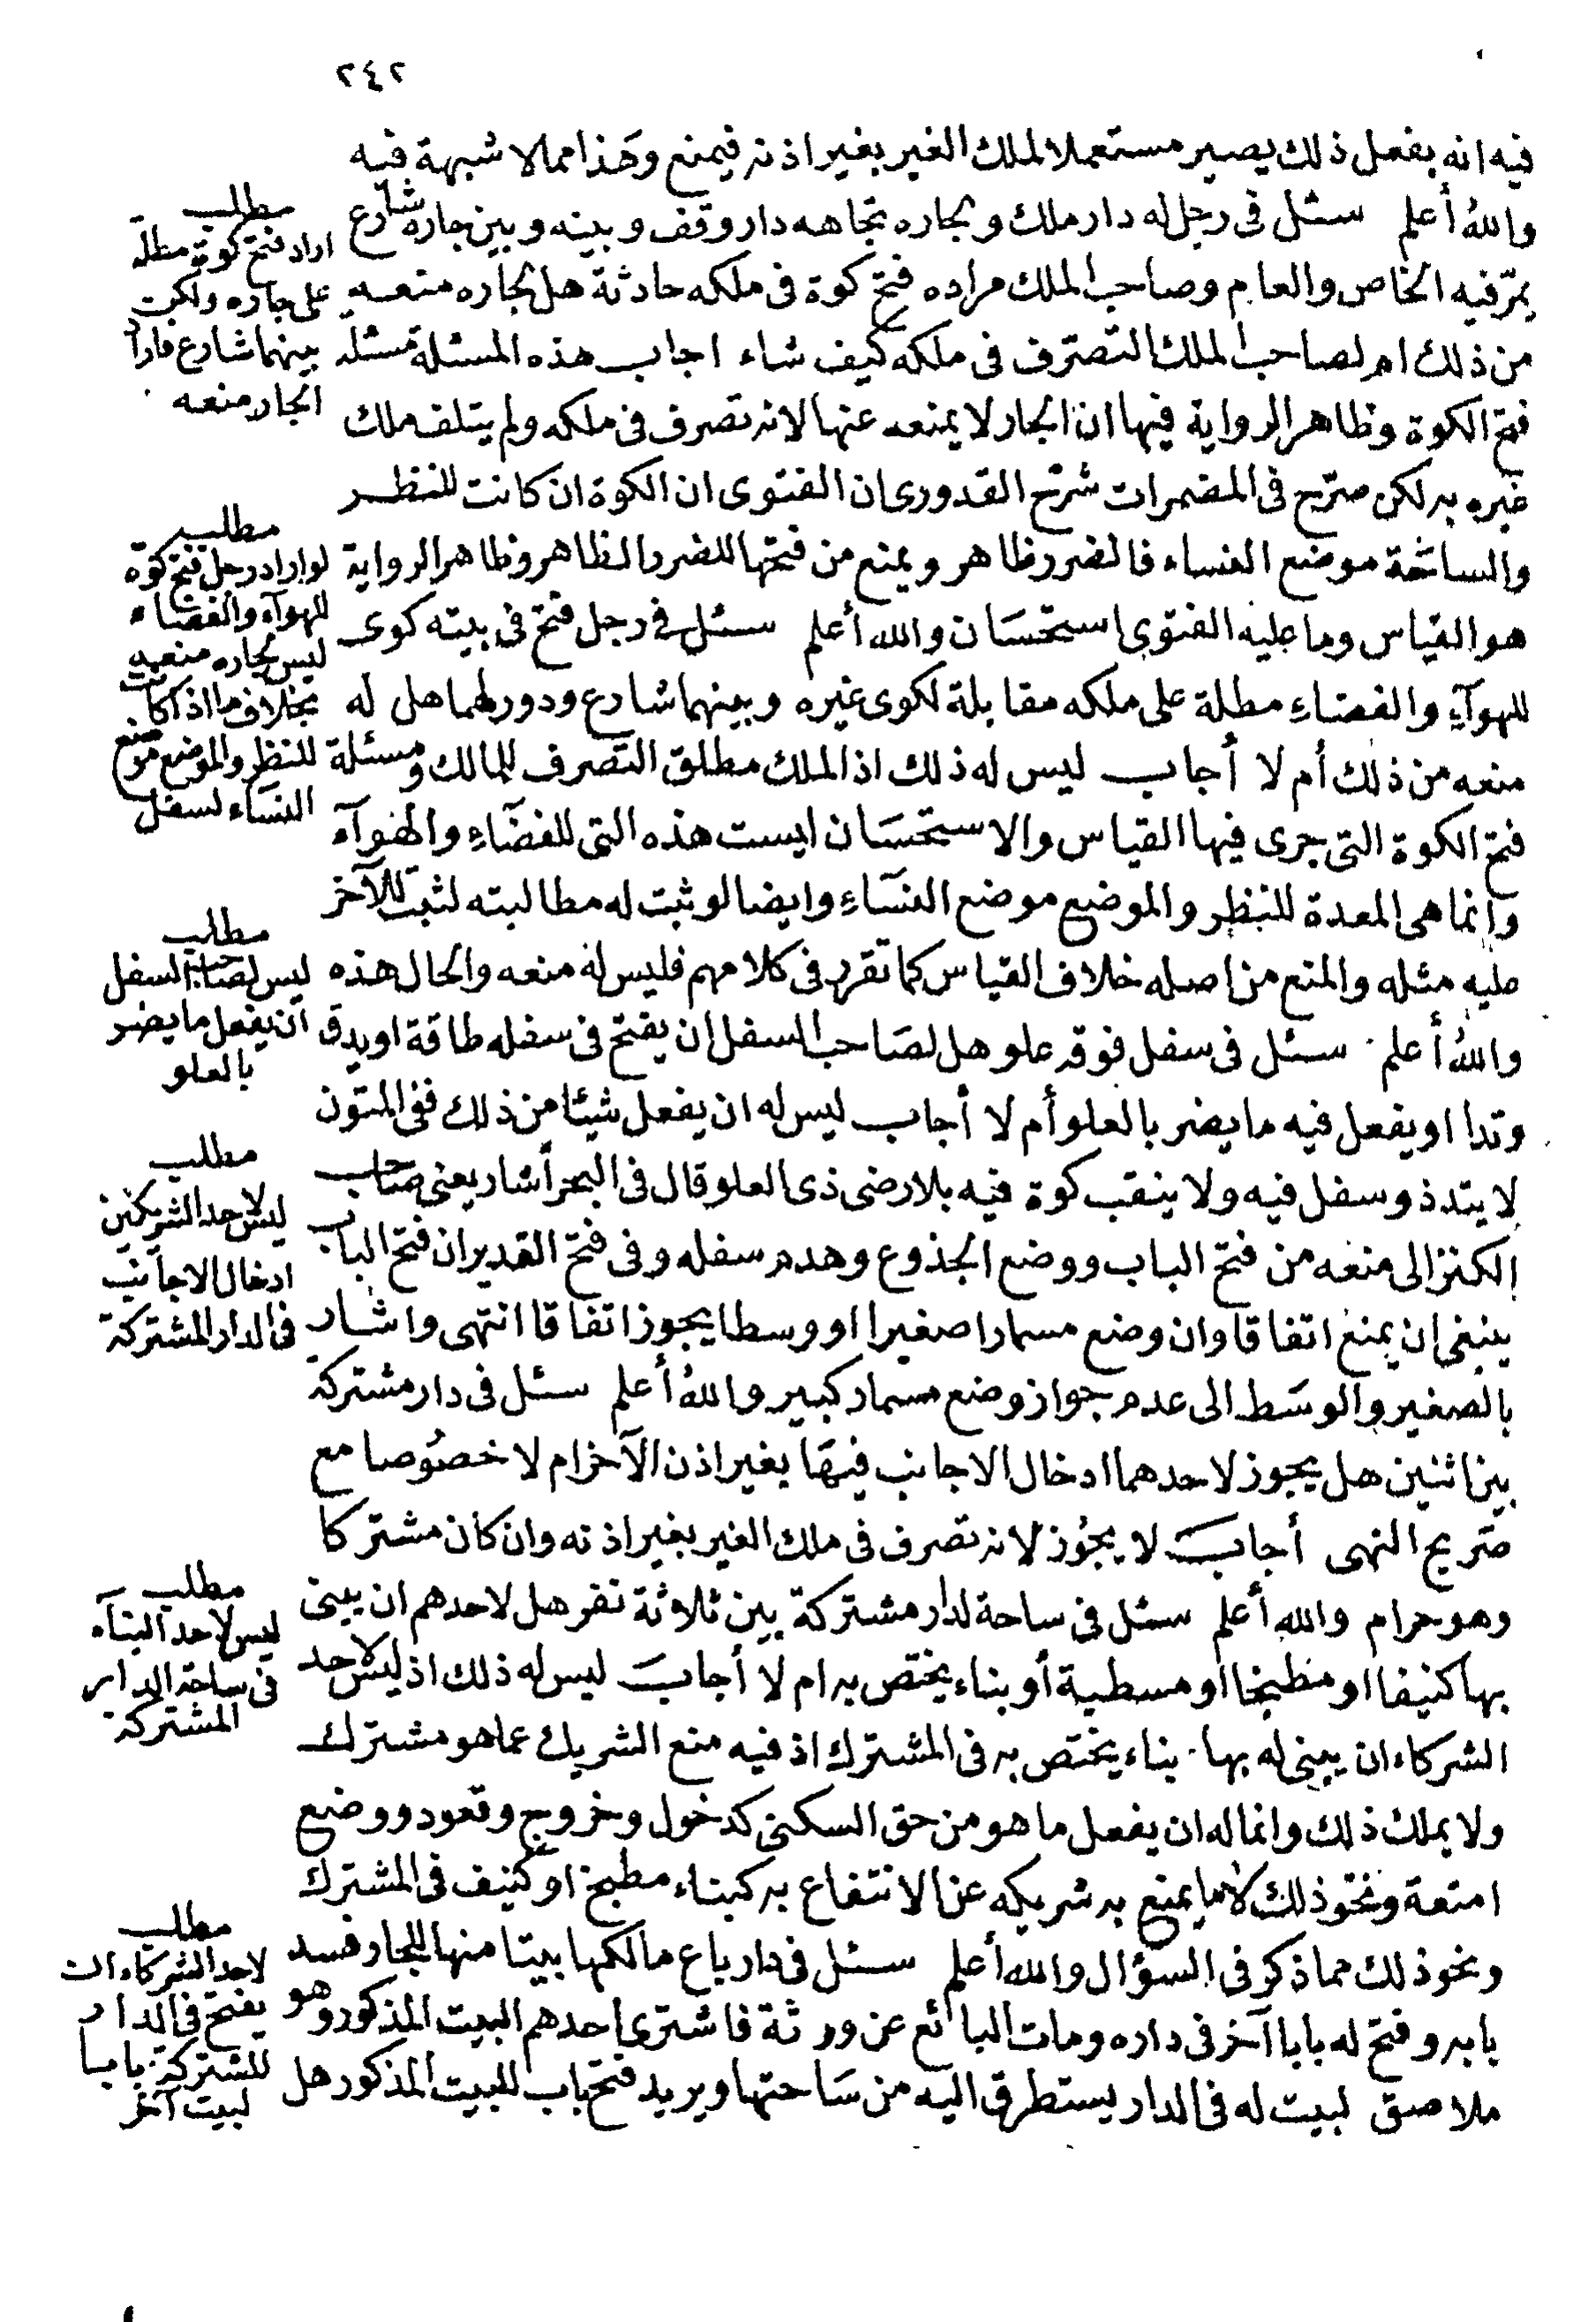 ٢٤٢
فيه انه بفعل ذلك يصير مستعملا لملك الغير بغير اذنه فيمنع وهذا مما لا شبهة فيه
والله أعلم سئل فى رجل له دار ملك وبجاره تجاهه دار وقف وبينه وبين جاره شارع
يمرّ فيه الخاص والعام وصاحب الملك مراده فتح كوة فى ملكه حادثة هل لجاره منعه
من ذلك ام لصاحب الملك التصرّف فى ملكه كيف شاء اجاب هذه المسئلة مسئلة
فتح الكوة وظاهر الرواية فيها ان الجار لا يمنعه عنها لانه تصرف فى ملكه ولم يتلف ملك
غيره به لكن صرّح فى المضمرات شرح القدورى ان الفتوى ان الكوة ان كانت للنظر
والساحة موضع النساء فالضرر ظاهر ويمنع من فتحها للضرر الظاهر وظاهر الرواية
هو القياس وما عليه الفتوى استحسان والله أعلم سئل فى رجل فتح فى بيته كوى
للهوآء والفضاء مطلة على ملكه مقابلة لكوى غيره وبينهما شارع ودور لهما هل له
منعه من ذلك أم لا أجاب ليس له ذلك اذ الملك مطلق التصرف للمالك ومسئلة
فتح الكوة التى جرى فيها القياس والاستحسان ليست هذه التى للفضاء والهوآء
وانما هى المعدة للنظر والموضع موضع النساء وايضا لو ثبت له مطالبته لثبت للآخر
عليه مثله والمنع من اصله خلاف القياس كما تقرر فى كلامهم فليس له منعه والحال هذه
والله أعلم سئل فى سفل فوقه علو هل لصاحب السفل ان يفتح فى سفله طاقة او يدق
وتدا او يفعل فيه ما يضر بالعلو أم لا أجاب ليس له ان يفعل شيئا من ذلك ففى المتون
لا يتد ذو سفل فيه ولا ينقب كوة فيه بلا رضى ذى العلو قال فى البحر أشار يعنى صاحب
الكنز الى منعه من فتح الباب ووضع الجذوع وهدم سفله وفى فتح القدير ان فتح الباب
ينبغى ان يمنع اتفاقا وان وضع مسمارا صغيرا او وسطا يجوز اتفاقا انتهى واشار
بالصغير والوسط الى عدم جواز وضع مسمار كبير والله أعلم سئل فى دار مشتركة
بين اثنين هل يجوز لاحدهما ادخال الاجانب فيها بغير اذن الآخر ام لا خصوصا مع
صريح النهى أجاب لا يجوز لانه تصرف فى ملك الغير بغير اذنه وان كان مشتركا
وهو حرام والله أعلم سئل فى ساحة لدار مشتركة بين ثلاثة نفر هل لاحدهم ان يبنى
بها كنيفا او مطبخا او مسطبة أو بناء يختص به ام لا أجاب ليس له ذلك اذ ليس لاحد
الشركاء ان يبنى له بها بناء يختص به فى المشترك اذ فيه منع الشريك عما هو مشترك
ولا يملك ذلك وانما له ان يفعل ما هو من حق السكنى كدخول وخروج وقعود ووضع
امتعة ونحو ذلك لا ما يمنع به شريكه عن الانتفاع به كبناء مطبخ او كنيف فى المشترك
ونحو ذلك مما ذكر فى السؤال والله أعلم سئل فى دار باع مالكها بيتا منها للجار فسد
بابه وفتح له بابا آخر فى داره ومات البائع عن ورثة فاشترى احدهم البيت المذكور وهو
ملاصق لبيت له فى الدار يستطرق اليه من ساحتها ويريد فتح باب للبيت المذكور هل
مطلب
اراد فتح كوة مطلة
على جاره ولكن
بينهما شارع فاراد
الجار منعه
مطلب
لو اراد رجل فتح كوة
للهوآء والفضاء
ليس لجاره منعه
بخلاف ما اذا كانت
للنظر والموضع موضع
النساء لسفل
مطلب
ليس لصاحب السفل
أن يفعل ما يضر
بالعلو
مطلب
ليس لاحد الشريكين
ادخال الاجانب
فى الدار المشتركة
مطلب
ليس لاحد البناء
فى ساحة الدار
المشتركة
مطلب
لاحد الشركاء ان
يفتح فى الدار
المشتركة بابا
لبيت آخر